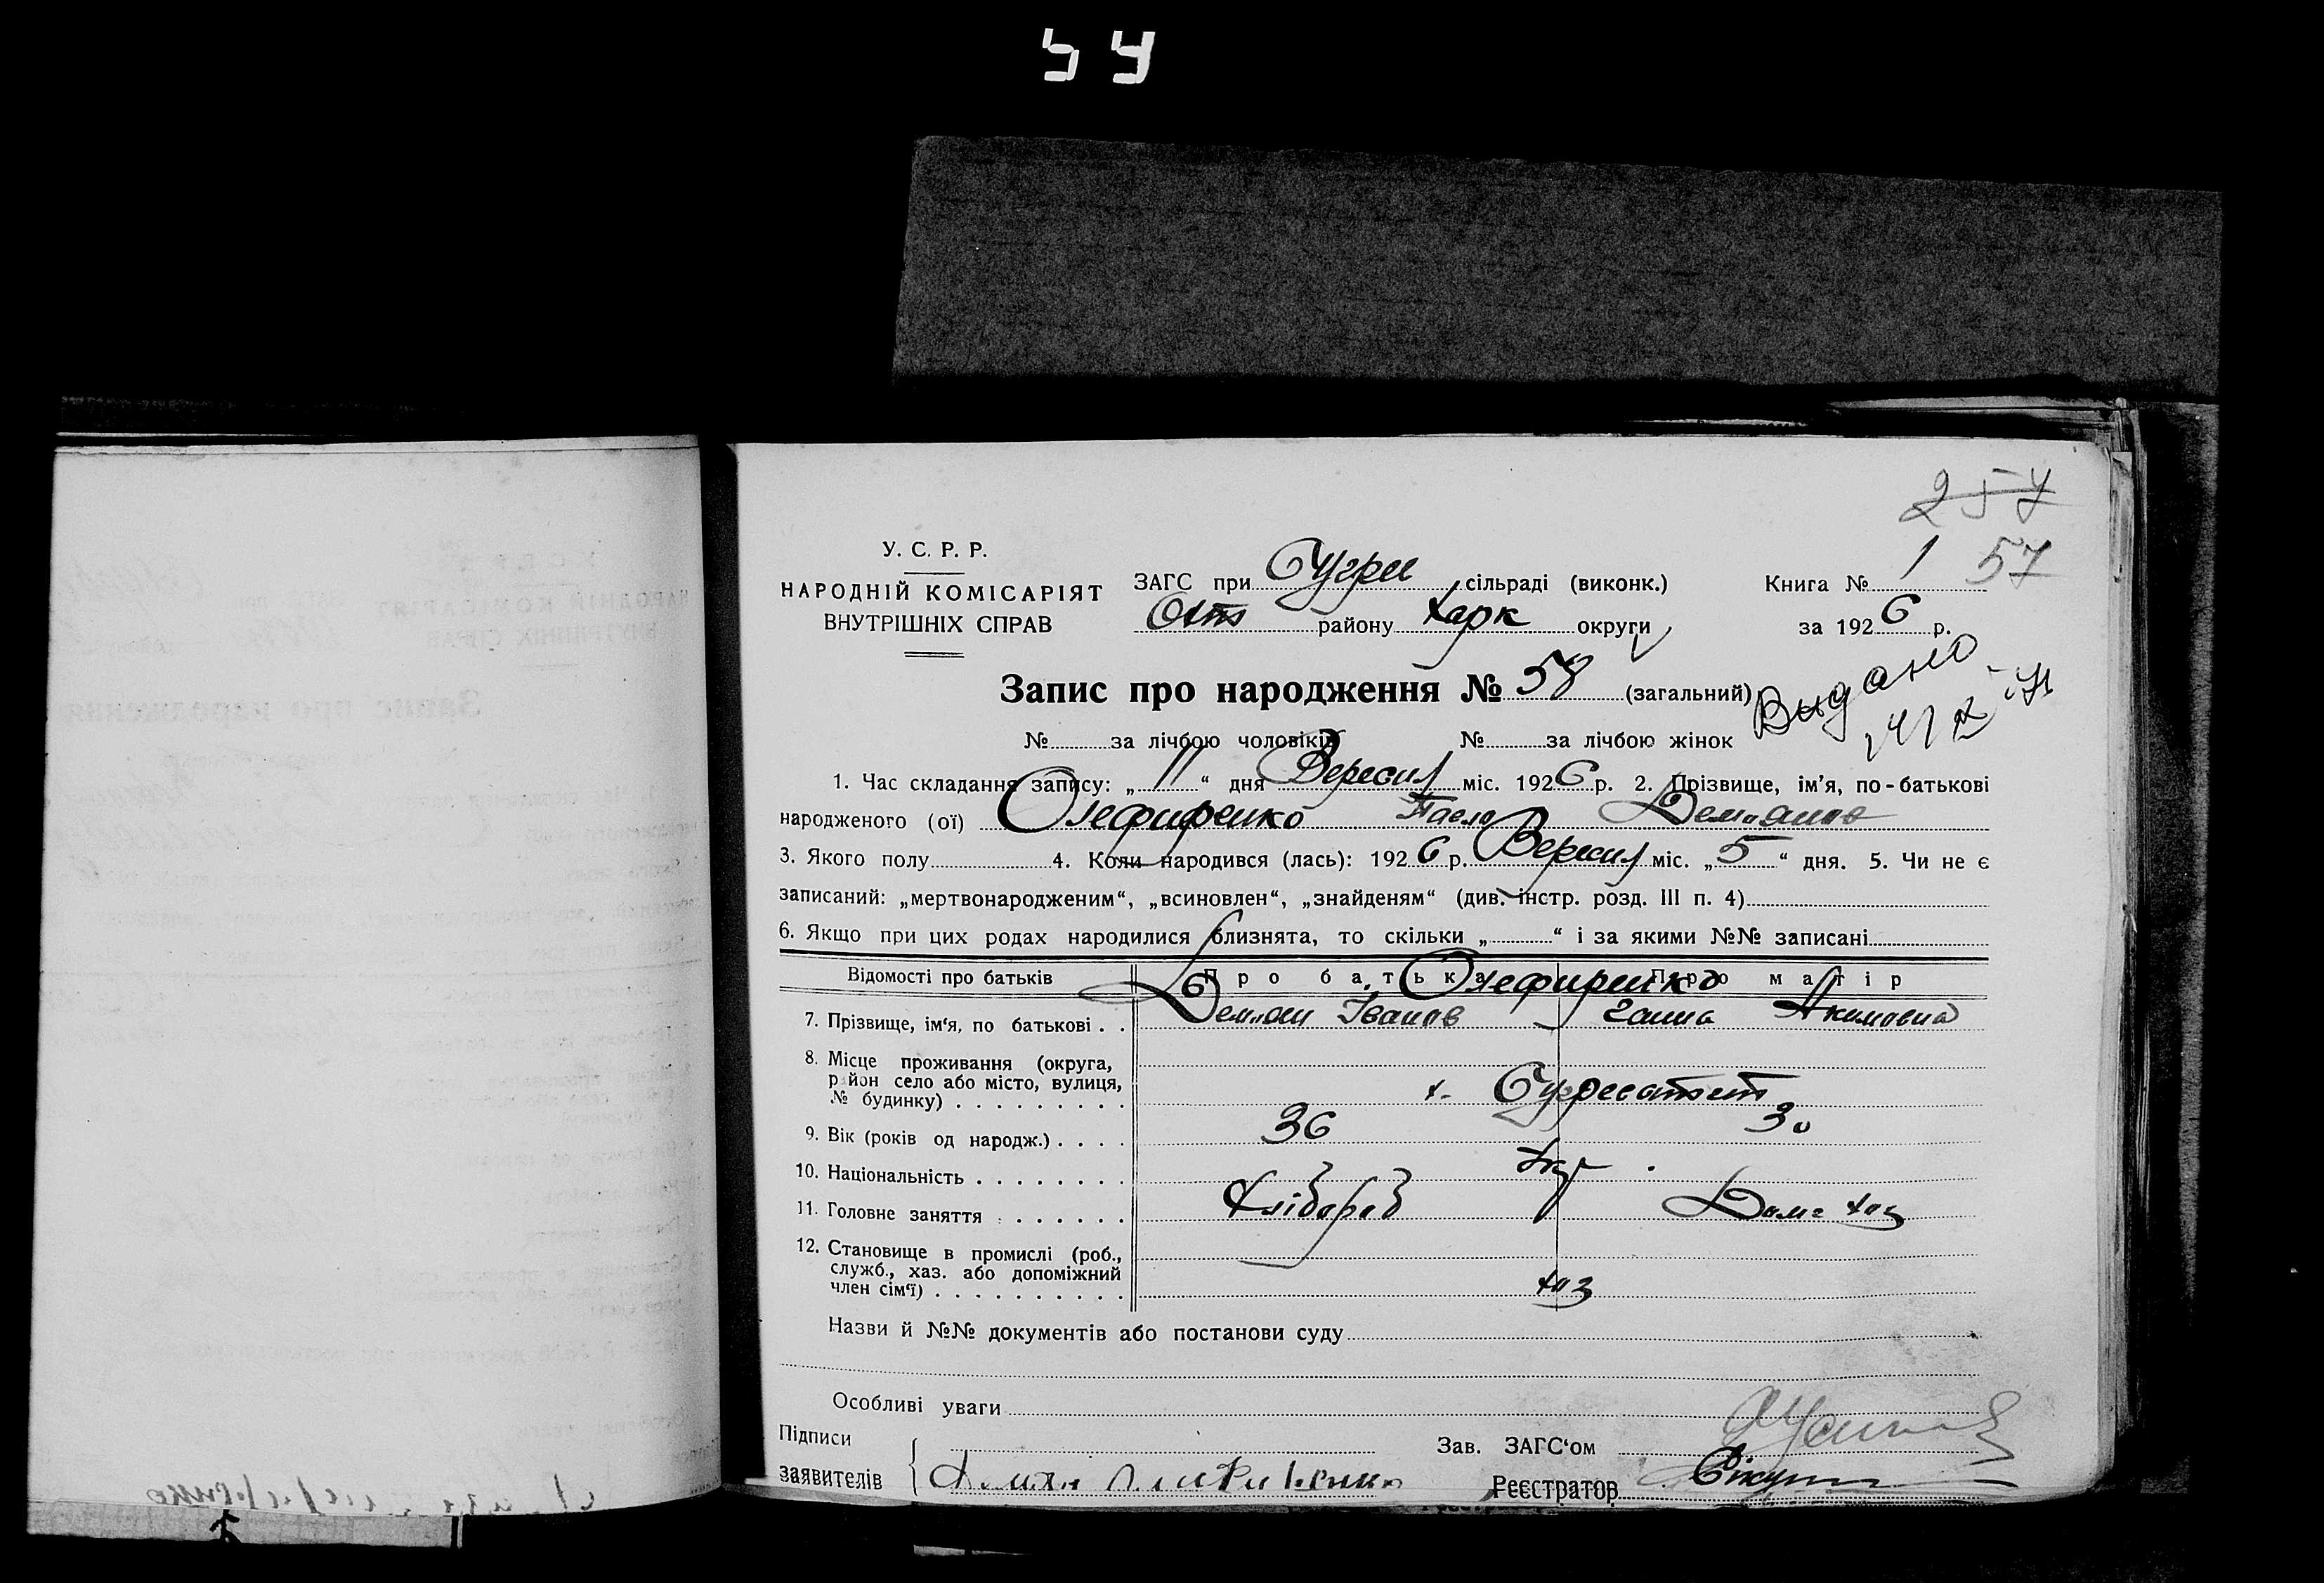 257
57
У. С. Р. Р.
НАРОДНІЙ КОМІСАРІЯТ
ВНУТРІШНІХ СПРАВ
ЗАГС при Угри сільраді (виконк.)
району Харк округи
Книга № 1
за 1926 р.
Запис про народження № 58 (загальний)
Видано
№ за лічбою чоловіків № за лічбою жінок
1. Час складання запису: „ 11 “ дня Вересня міс. 1926 р. 2. Прізвище, ім'я, по-батькові
народженого (ої) Олефиренко Павло Демянов
3. Якого полу 4. Коли народився (лась): 1926 р. Вересня міс. „ 5 “ дня. 5. Чи не є
записаний: „мертвонародженим“, „всиновлен“, „знайденям“ (див. інстр. розд. III п. 4)
6. Якщо при цих родах народилися близнята, то скільки „ “ і за якими №№ записані
Відомості про батьків Про батька Про матір
Олефиренко
7. Прізвище, ім'я, по батькові . . Демян Іванов Ганна Акимовна
8. Місце проживання (округа,
район село або місто, вулиця,
№ будинку) . . . . . . . . . х.
9. Вік (років од народж.) . . . . 36 30
10. Національність . . . . . . . . Укр
11. Головне заняття . . . . . . . Хлібороб Дом. хаз
12. Становище в промислі (роб.,
служб., хаз. або допоміжний
член сім'ї) . . . . . . . . . . хаз
Назви й №№ документів або постанови суду
Особливі уваги
Підписи
заявителів
Демян Олефиренко
Зав. ЗАГС'ом
Реєстратор